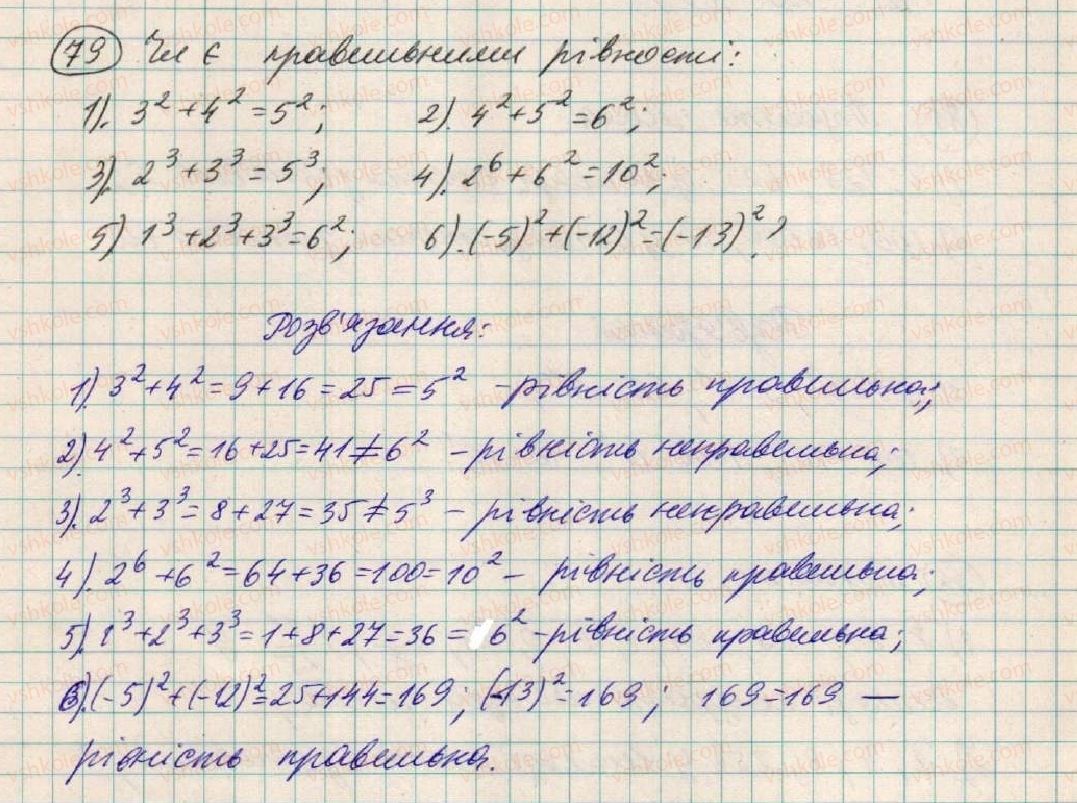 79 Чи є правильними рівності:
1). 3² + 4² = 5²; 2). 4² + 5² = 6²;
3). 2³ + 3³ = 5³; 4). 2⁶ + 6² = 10²;
5) 1³ + 2³ + 3³ = 6²; 6). (-5)² + (-12)² = (-13)²?
Розв'язання:
1). 3² + 4² = 9 + 16 = 25 = 5² - рівність правильна;
2). 4² + 5² = 16 + 25 = 41 ≠ 6² - рівність неправильна;
3). 2³ + 3³ = 8 + 27 = 35 ≠ 5³ - рівність неправильна;
4). 2⁶ + 6² = 64 + 36 = 100 = 10² - рівність правильна;
5). 1³ + 2³ + 3³ = 1 + 8 + 27 = 36 = 6² - рівність правильна;
6). (-5)² + (-12)² = 25 + 144 = 169; (-13)² = 169; 169 = 169 —
рівність правильна.